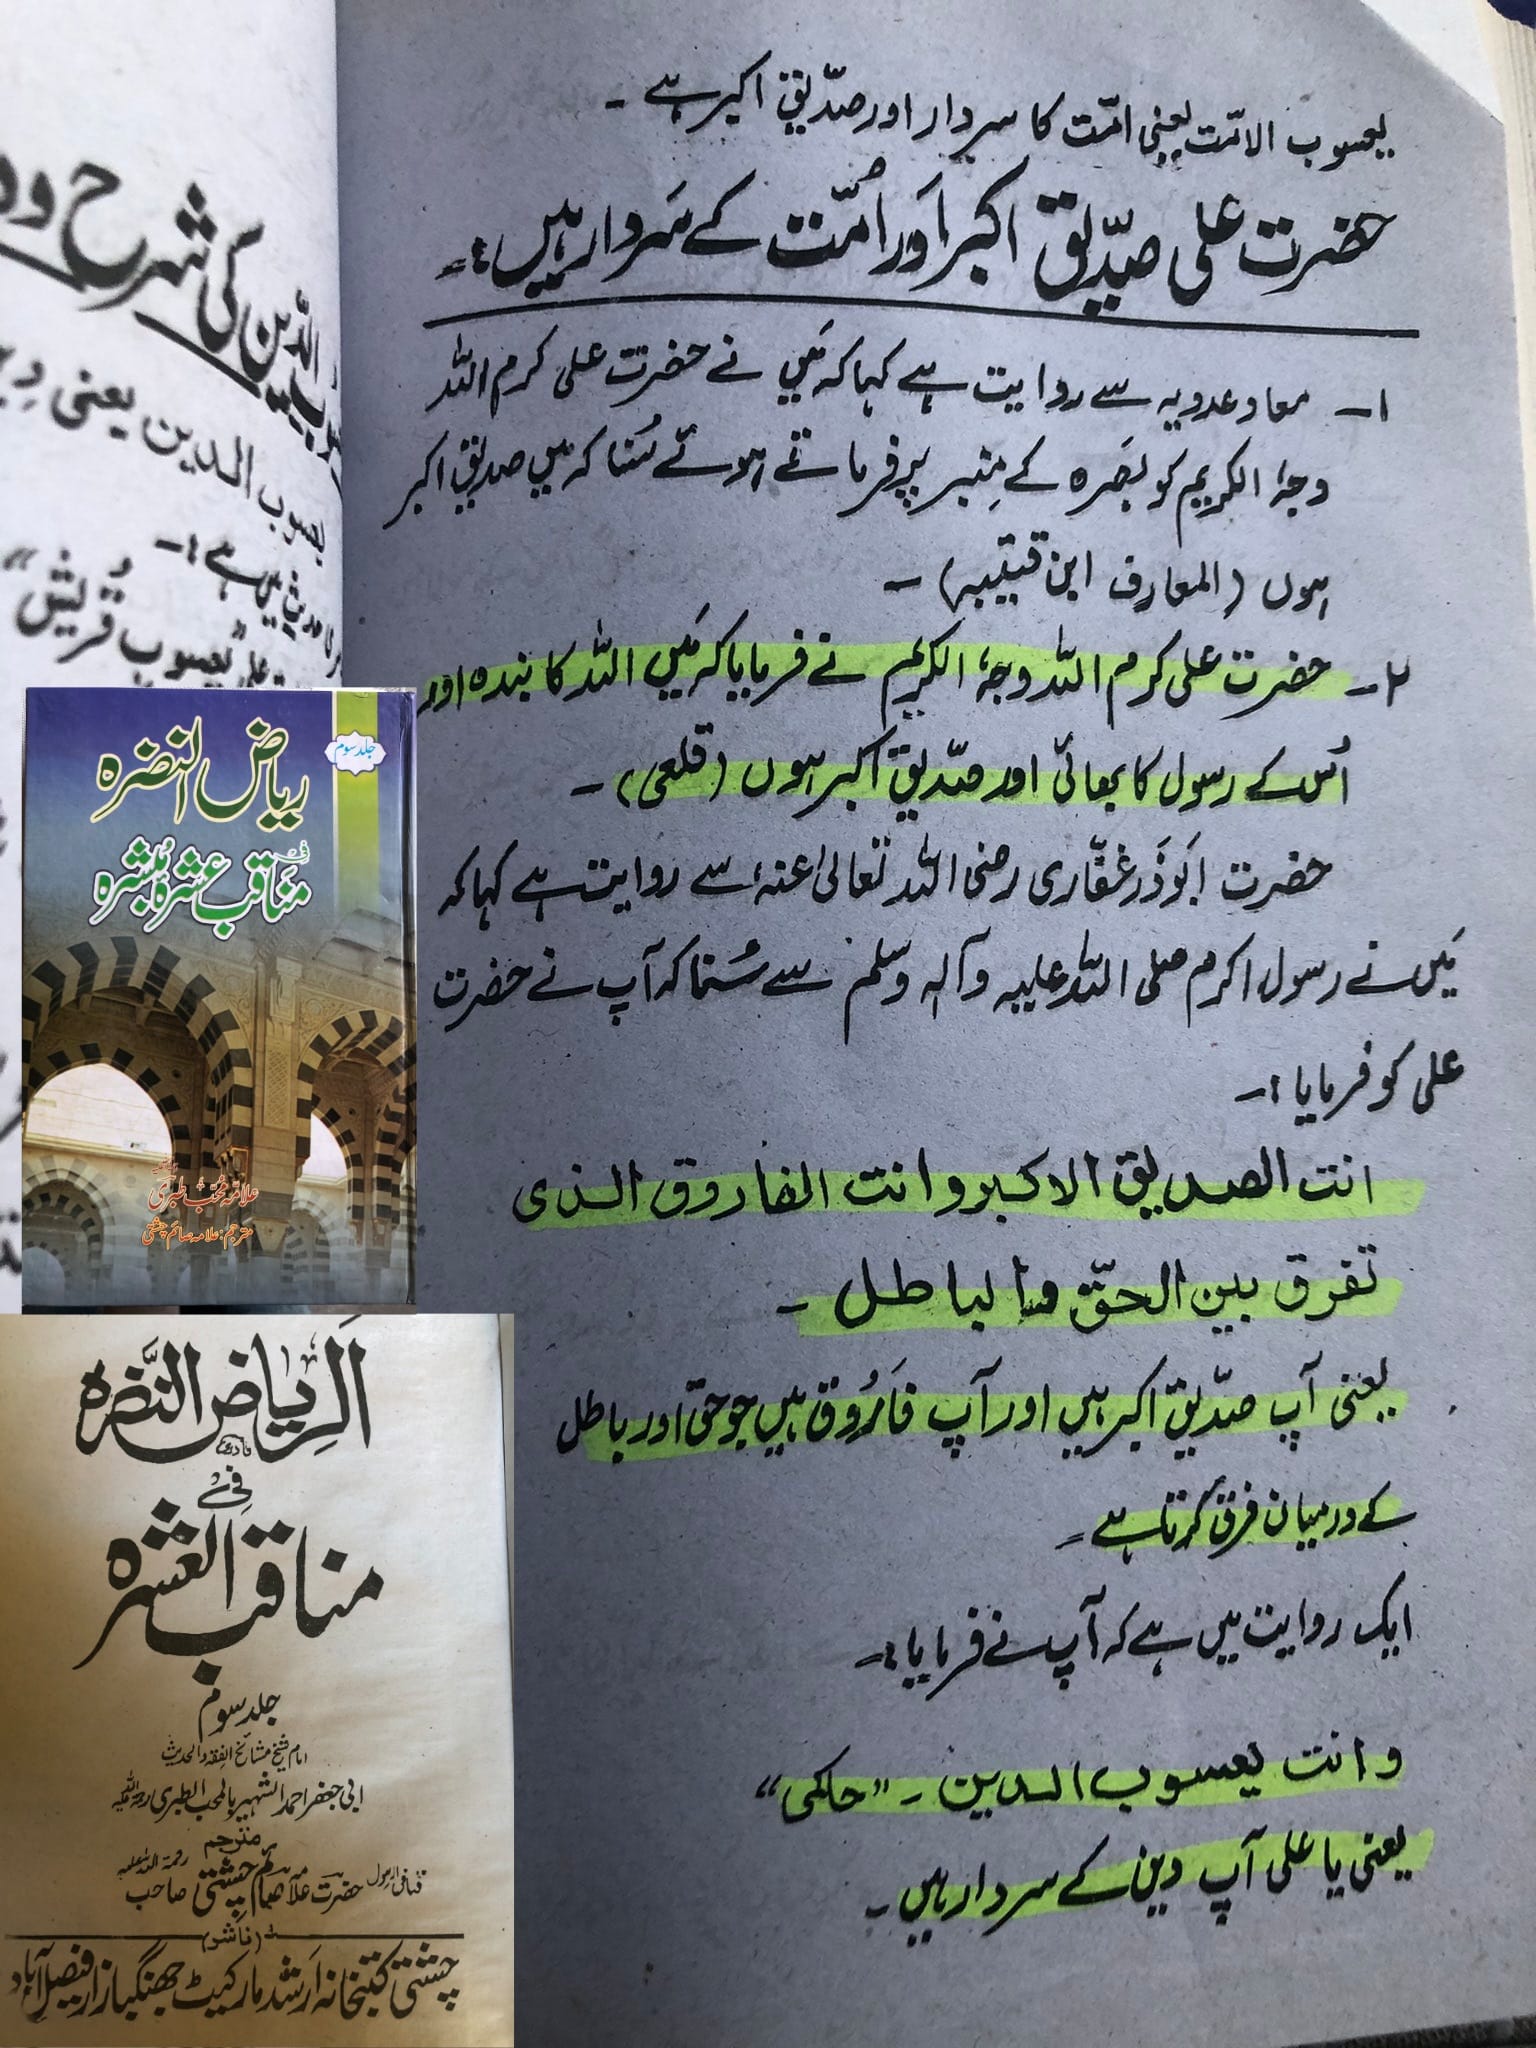 یعسوب الامّت یعنی امّت کا سردار اور صدّیقِ اکبر ہے ۔
حضرت علی صدّیق اکبر اَور اُمّت کے سَردار ہیں :۔
۱۔ معاذ عدویہ سے روایت ہے کہا کہ مَیں نے حضرت علی کرم اللہ
وجہُ الکریم کو بصَرہ کے مِنبر پر فرماتے ہوئے سُنا کہ میں صدیقِ اکبر
ہوں (المعارف ابن قتیبہ) ۔
۲۔ حضرت علی کرم اللہ وجہُ الکریم نے فرمایا کہ مَیں اللہ کا بندہ اور
اُس کے رسول کا بھائی اور صدّیقِ اکبر ہوں (قلعی) ۔
حضرت ابوذَر غفّاری رضی اللہ تعالیٰ عنہُ سے روایت ہے کہا کہ
مَیں نے رسول اکرم صلی اللہ علیہ وآلہ وسلم سے سُنا کہ آپ نے حضرت
علی کو فرمایا :۔
انت الصدیق الاکبر وانت الفاروق الذی
تفرق بین الحقّ والباطل ۔
یعنی آپ صدّیق اکبر ہیں اور آپ فارُوق ہیں جو حق اور باطل
کے درمیان فرق کرتا ہے ۔
ایک روایت میں ہے کہ آپ نے فرمایا :۔
وانت یعسوب الدین ۔ "حاکمی"
یعنی یا علی آپ دین کے سردار ہیں ۔
الدّین کی شرح
یعسوب الدین یعنی
ہے :۔
یعسوب قُریش"
جلد سوم
ریاض النضرہ
فی
مناقب عشرہ مبشرہ
علامہ محب طبری
مترجم: علامہ صائم چشتی
اَلرّیاض النَّضرہ
فِی
مناقب العشرہ
جلد سوم
امام شیخ مشائخ الفقہ والحدیث
ابی جعفر احمد الشہیر بالمحب الطبری رحمۃ اللہ علیہ
مترجم
فنافی الرسول حضرت علامہ صائم چشتی صاحب رحمۃ اللہ علیہ
(ناشر)
چشتی کتبخانہ اَرشد مارکیٹ جھنگ بازار فیصل آباد